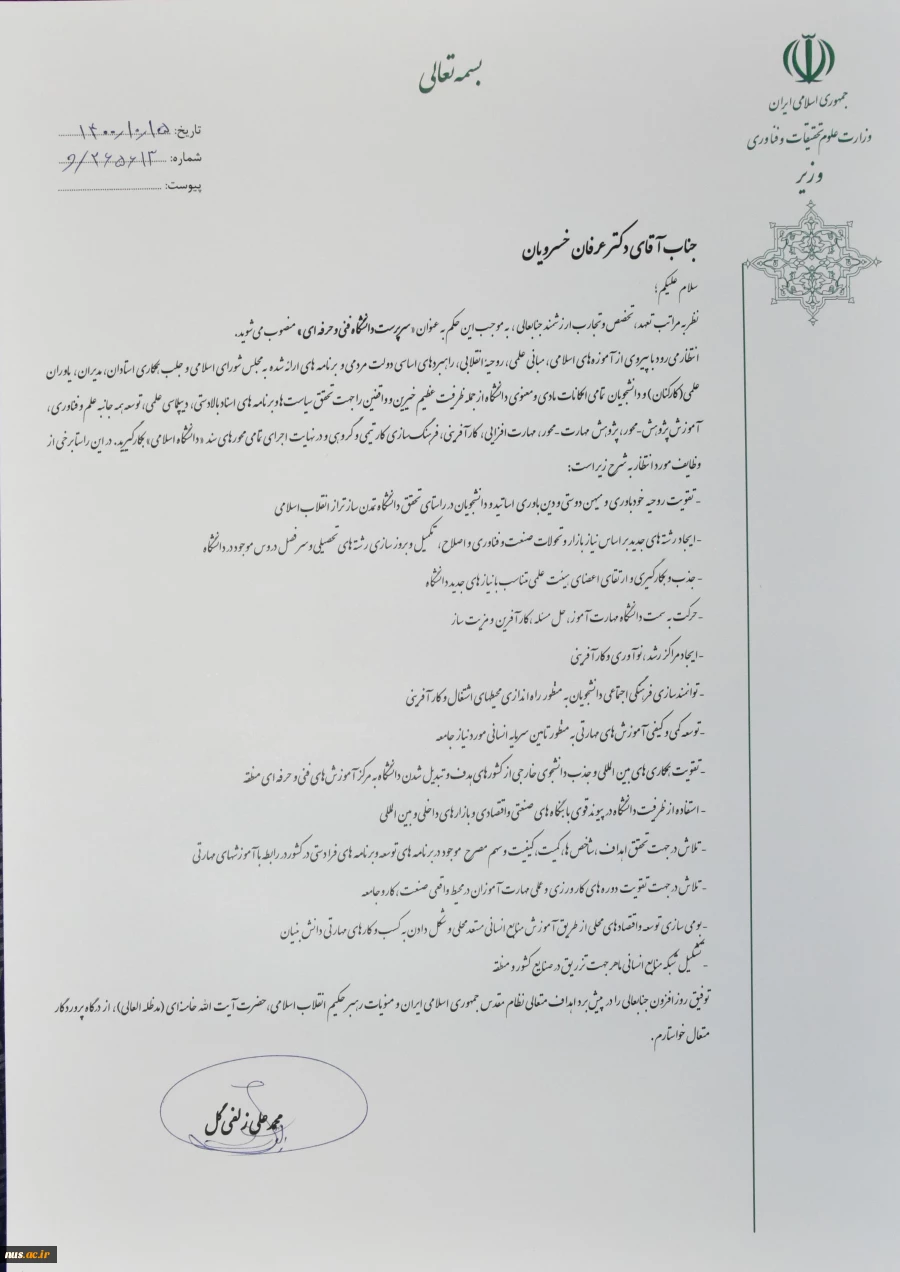 بسمه تعالی
جمهوری اسلامی ایران
وزارت علوم تحقیقات و فناوری
وزیر
تاریخ: ۱۴۰۰/۱۰/۵
شماره: ۲۶۵۶۱۳/و
پیوست:
جناب آقای دکتر عرفان خسرویان
سلام علیکم؛
نظر به مراتب تعهد، تخصص و تجارب ارزشمند جنابعالی، به موجب این حکم به عنوان «سرپرست دانشگاه فنی و حرفه ای» منصوب می شوید.
انتظار می رود با پیروی از آموزه های اسلامی، مبانی علمی، روحیه انقلابی، راهبردهای اساسی دولت مردمی و برنامه های ارائه شده به مجلس شورای اسلامی و جلب همکاری استادان، مدیران، یاوران
علمی (کارکنان) و دانشجویان تمامی امکانات مادی و معنوی دانشگاه از جمله ظرفیت عظیم خیرین و واقفین را جهت تحقق سیاست ها و برنامه های اسناد بالادستی، دیپلماسی علمی، توسعه همه جانبه علم و فناوری،
آموزش پژوهش-محور، پژوهش مهارت-محور، مهارت افزایی، کارآفرینی، فرهنگ سازی کار تیمی و گروهی و در نهایت اجرای تمامی محورهای سند «دانشگاه اسلامی» بکار گیرید. در این راستا برخی از
وظایف مورد انتظار به شرح زیر است:
- تقویت روحیه خودباوری و میهن دوستی و دین باوری اساتید و دانشجویان در راستای تحقق دانشگاه تمدن ساز تراز انقلاب اسلامی
- ایجاد رشته های جدید بر اساس نیاز بازار و تحولات صنعت و فناوری و اصلاح، تکمیل و بروز سازی رشته های تحصیلی و سرفصل دروس موجود در دانشگاه
- جذب و بکارگیری و ارتقای اعضای هیئت علمی متناسب با نیازهای جدید دانشگاه
- حرکت به سمت دانشگاه مهارت آموز، حل مسئله، کارآفرین و مزیت ساز
- ایجاد مراکز رشد، نوآوری و کارآفرینی
- توانمندسازی فرهنگی اجتماعی دانشجویان به منظور راه اندازی محیطهای اشتغال و کارآفرینی
- توسعه کمی و کیفی آموزش های مهارتی به منظور تامین سرمایه انسانی مورد نیاز جامعه
- تقویت همکاری های بین المللی و جذب دانشجوی خارجی از کشورهای هدف و تبدیل شدن دانشگاه به مرکز آموزش های فنی و حرفه ای منطقه
- استفاده از ظرفیت دانشگاه در پیوند قوی با بنگاه های صنعتی و اقتصادی و بازارهای داخلی و بین المللی
- تلاش در جهت تحقق اهداف، شاخص ها، کمیت، کیفیت و سهم مصرح موجود در برنامه های توسعه و برنامه های فرادستی در کشور در رابطه با آموزشهای مهارتی
- تلاش در جهت تقویت دوره های کارورزی و عملی مهارت آموزان در محیط واقعی صنعت، کار و جامعه
- بومی سازی توسعه و اقتصادهای محلی از طریق آموزش منابع انسانی مستعد محلی و شکل دادن به کسب و کارهای مهارتی دانش بنیان
- تشکیل شبکه منابع انسانی ماهر جهت تزریق در صنایع کشور و منطقه
توفیق روز افزون جنابعالی را در پیش برد اهداف متعالی نظام مقدس جمهوری اسلامی ایران و منویات رهبر حکیم انقلاب اسلامی، حضرت آیت الله خامنه ای (مدظله العالی)، از درگاه پروردگار
متعال خواستارم.
محمد علی زلفی گل
nus.ac.ir